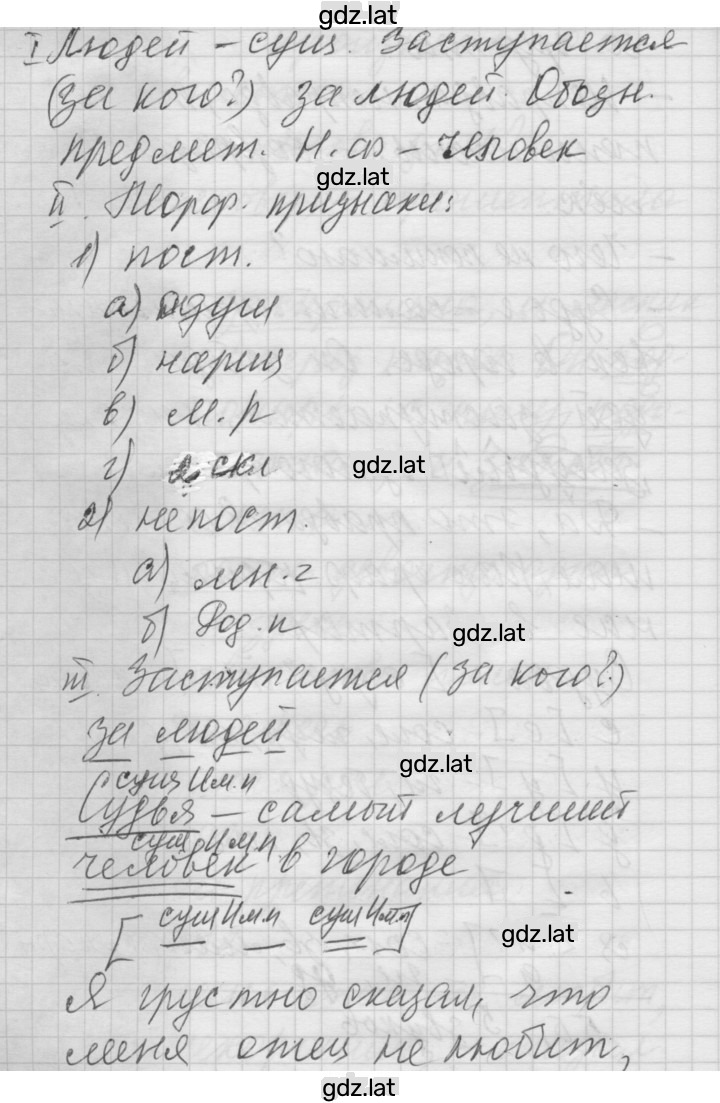 gdz.lat
I Людей – сущ. Заступается
(за кого?) за людей. Обозн.
предмет. Н.ф – человек
gdz.lat
II. Морф. признаки:
1) пост.
а) одуш
б) нариц
в) м.р
г) 2 скл
gdz.lat
2) непост.
а) мн.ч
б) Род.п
gdz.lat
III. Заступается (за кого?)
за людей
gdz.lat
сущ Им.п
Судья – самый лучший
сущ Им.п
человек в городе
[сущ Им.п — сущ Им.п]
gdz.lat
Я грустно сказал, что
меня отец не любит,
gdz.lat